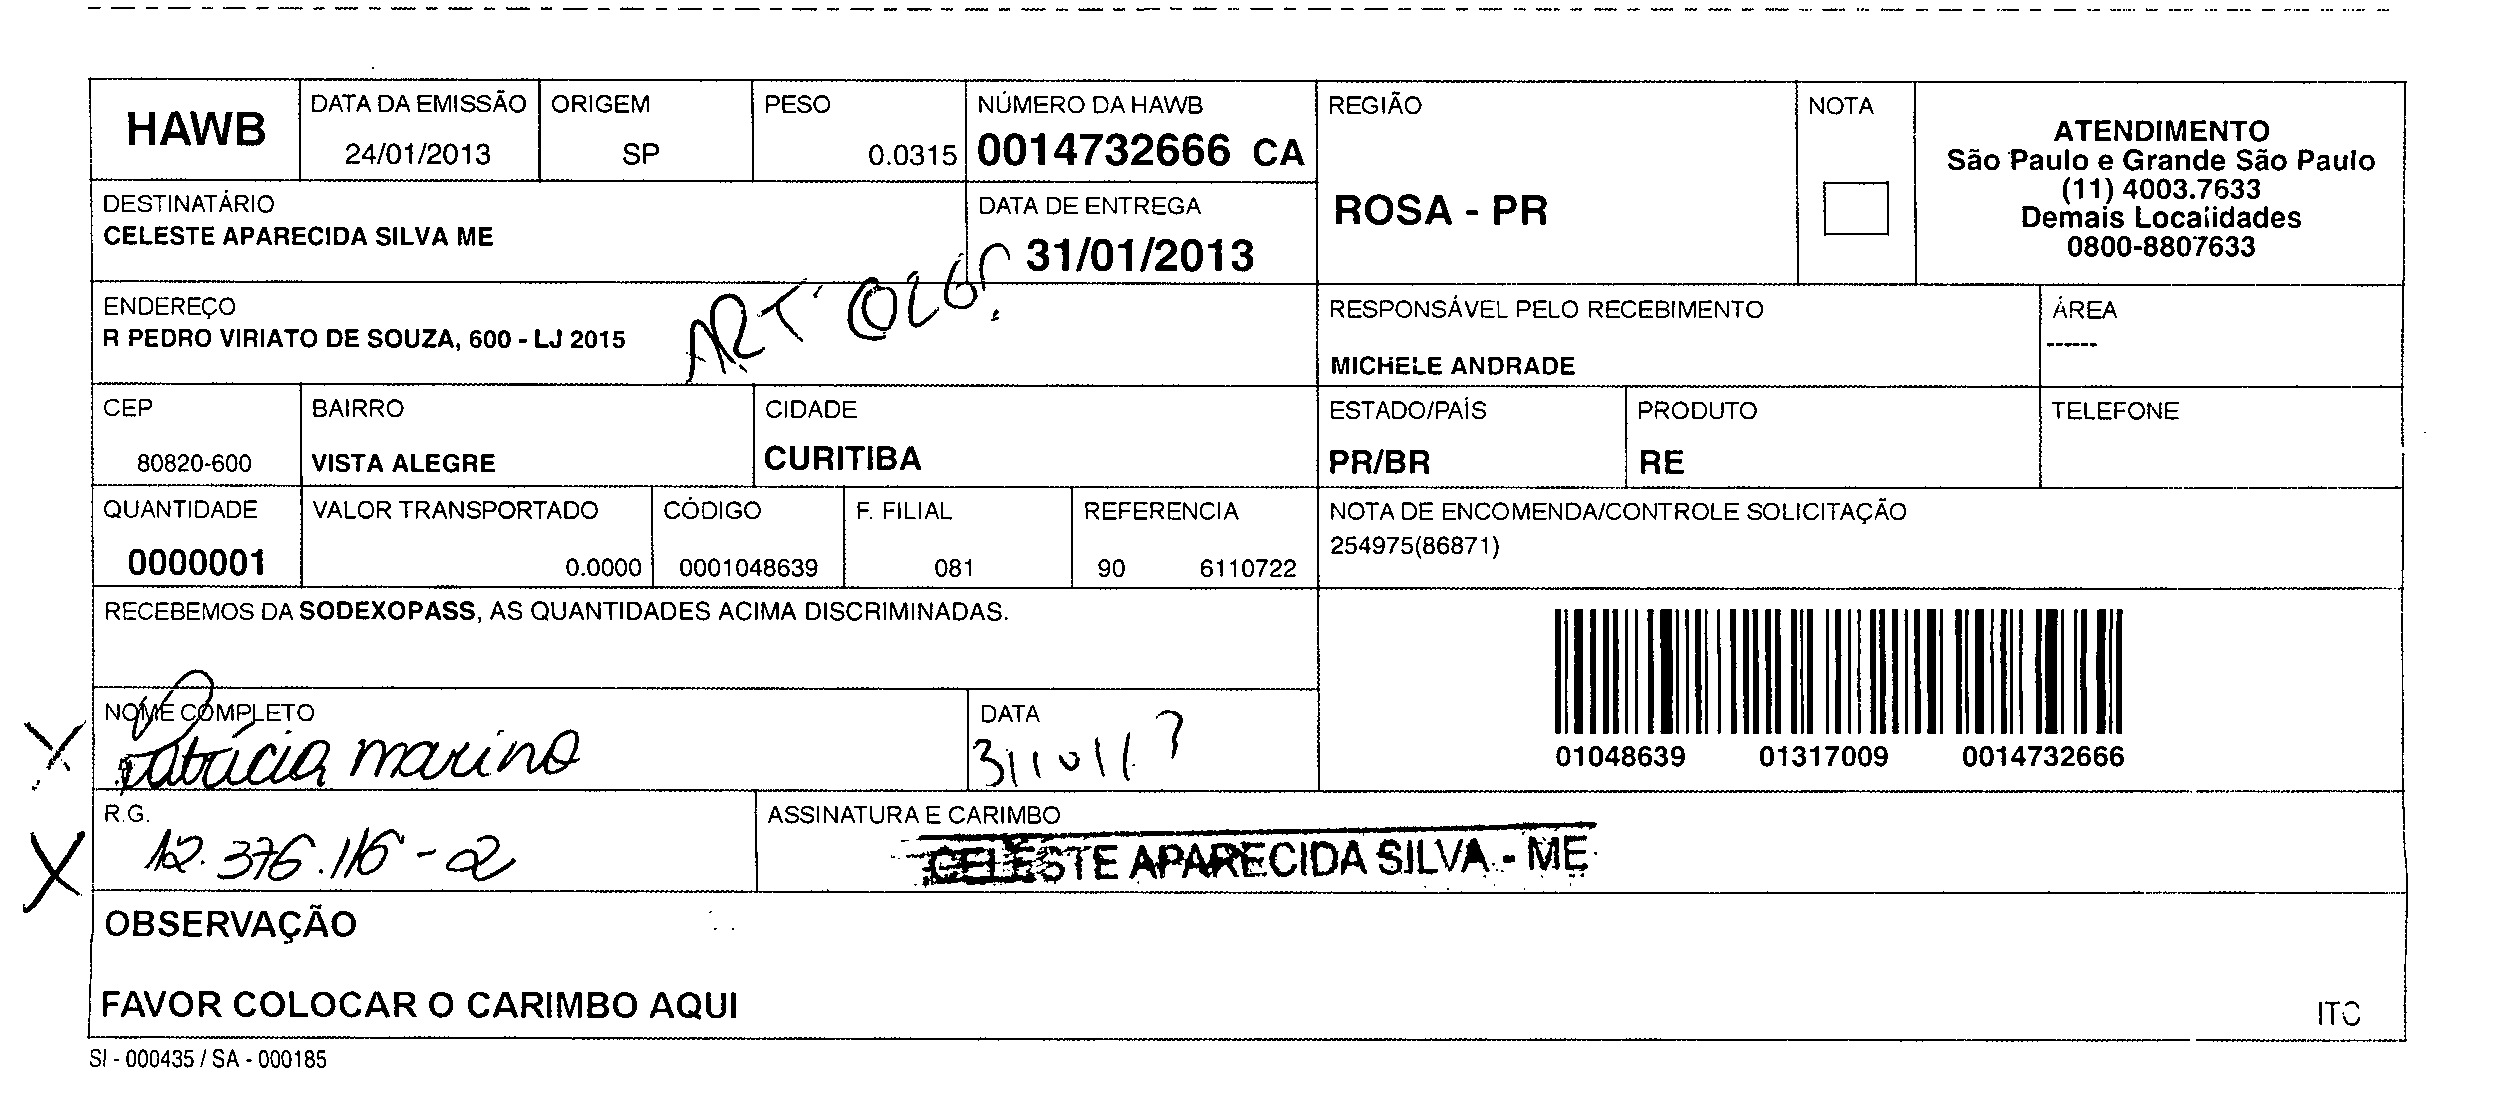 HAWB
DATA DA EMISSÃO
24/01/2013
ORIGEM
SP
PESO
0.0315
NÚMERO DA HAWB
0014732666 CA
REGIÃO
ROSA - PR
NOTA
ATENDIMENTO
São Paulo e Grande São Paulo
(11) 4003.7633
Demais Localidades
0800-8807633
DESTINATÁRIO
CELESTE APARECIDA SILVA ME
DATA DE ENTREGA
31/01/2013
ENDEREÇO
R PEDRO VIRIATO DE SOUZA, 600 - LJ 2015
ART
RESPONSÁVEL PELO RECEBIMENTO
MICHELE ANDRADE
ÁREA
------
CEP
80820-600
BAIRRO
VISTA ALEGRE
CIDADE
CURITIBA
ESTADO/PAÍS
PR/BR
PRODUTO
RE
TELEFONE
QUANTIDADE
0000001
VALOR TRANSPORTADO
0.0000
CÓDIGO
0001048639
F. FILIAL
081
REFERENCIA
90 6110722
NOTA DE ENCOMENDA/CONTROLE SOLICITAÇÃO
254975(86871)
RECEBEMOS DA SODEXOPASS, AS QUANTIDADES ACIMA DISCRIMINADAS.
01048639 01317009 0014732666
NOME COMPLETO
Patrícia marino
DATA
R.G.
12.376.116-2
ASSINATURA E CARIMBO
CELESTE APARECIDA SILVA - ME
OBSERVAÇÃO
FAVOR COLOCAR O CARIMBO AQUI
ITC
SI - 000435 / SA - 000185